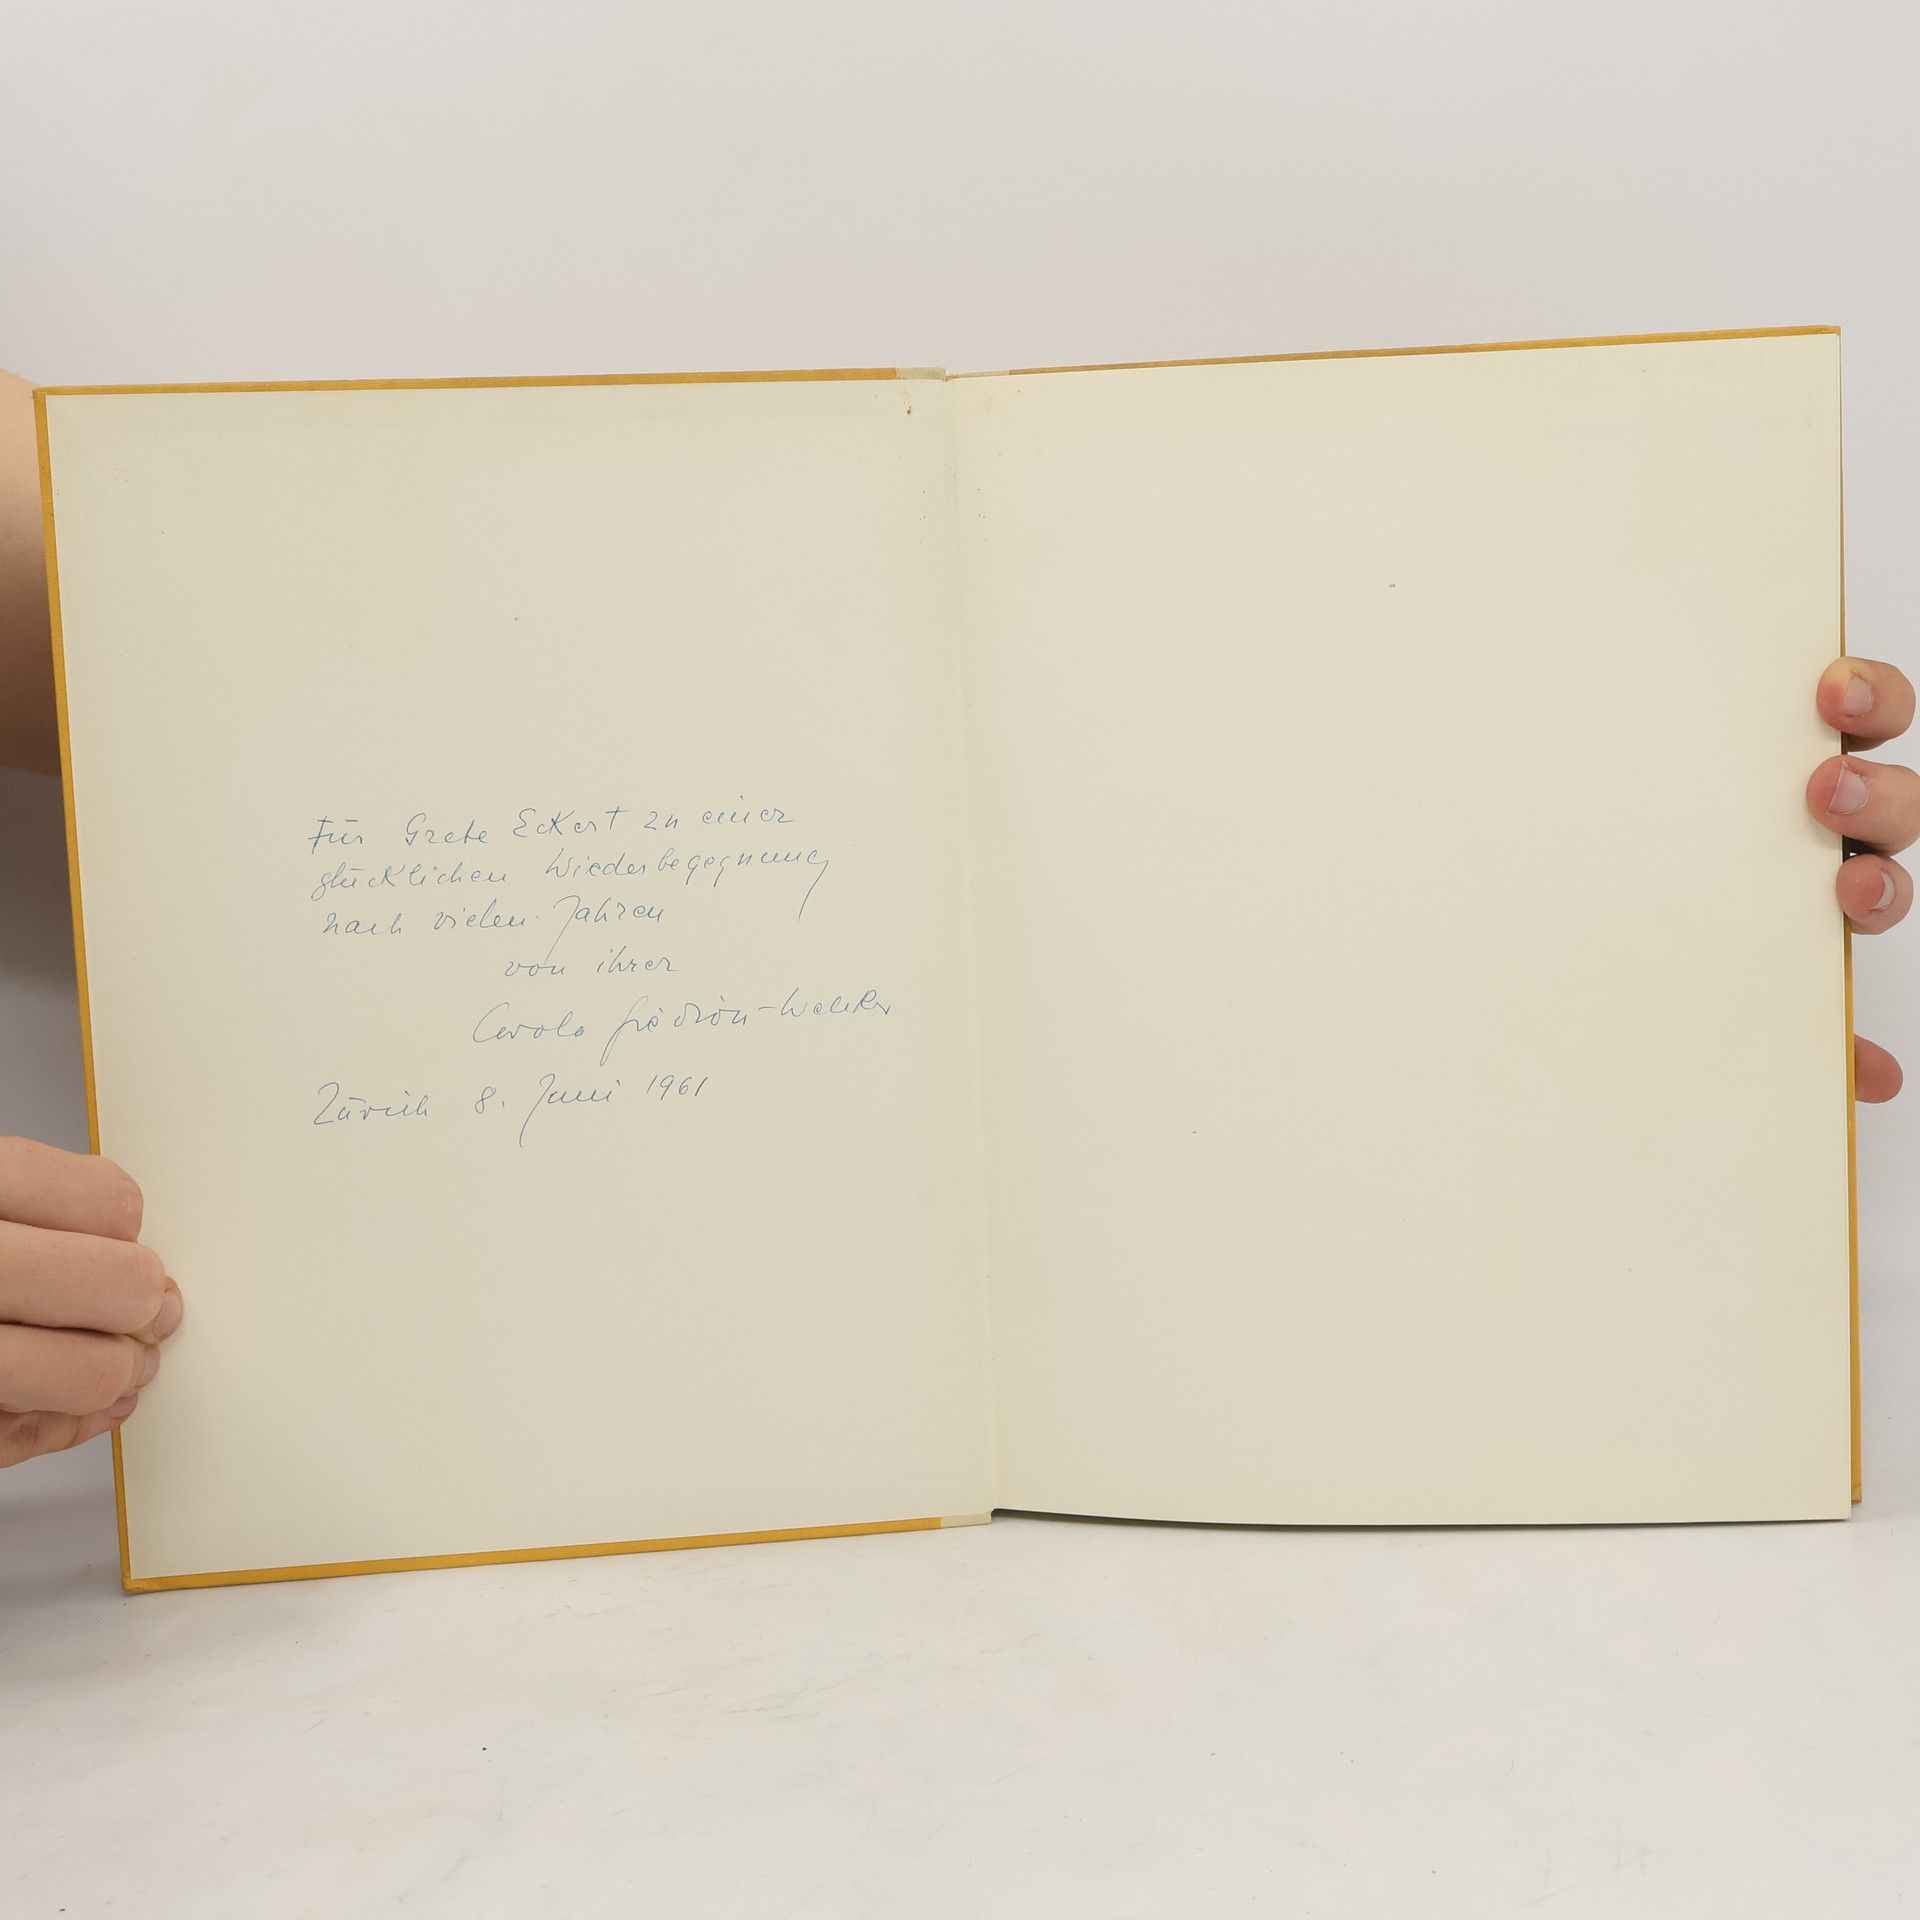 Für Grete Eckert zu einer
glücklichen Wiederbegegnung
nach vielen Jahren
von ihrer
Carola Giedion-Welcker
Zürich 8. Juni 1961